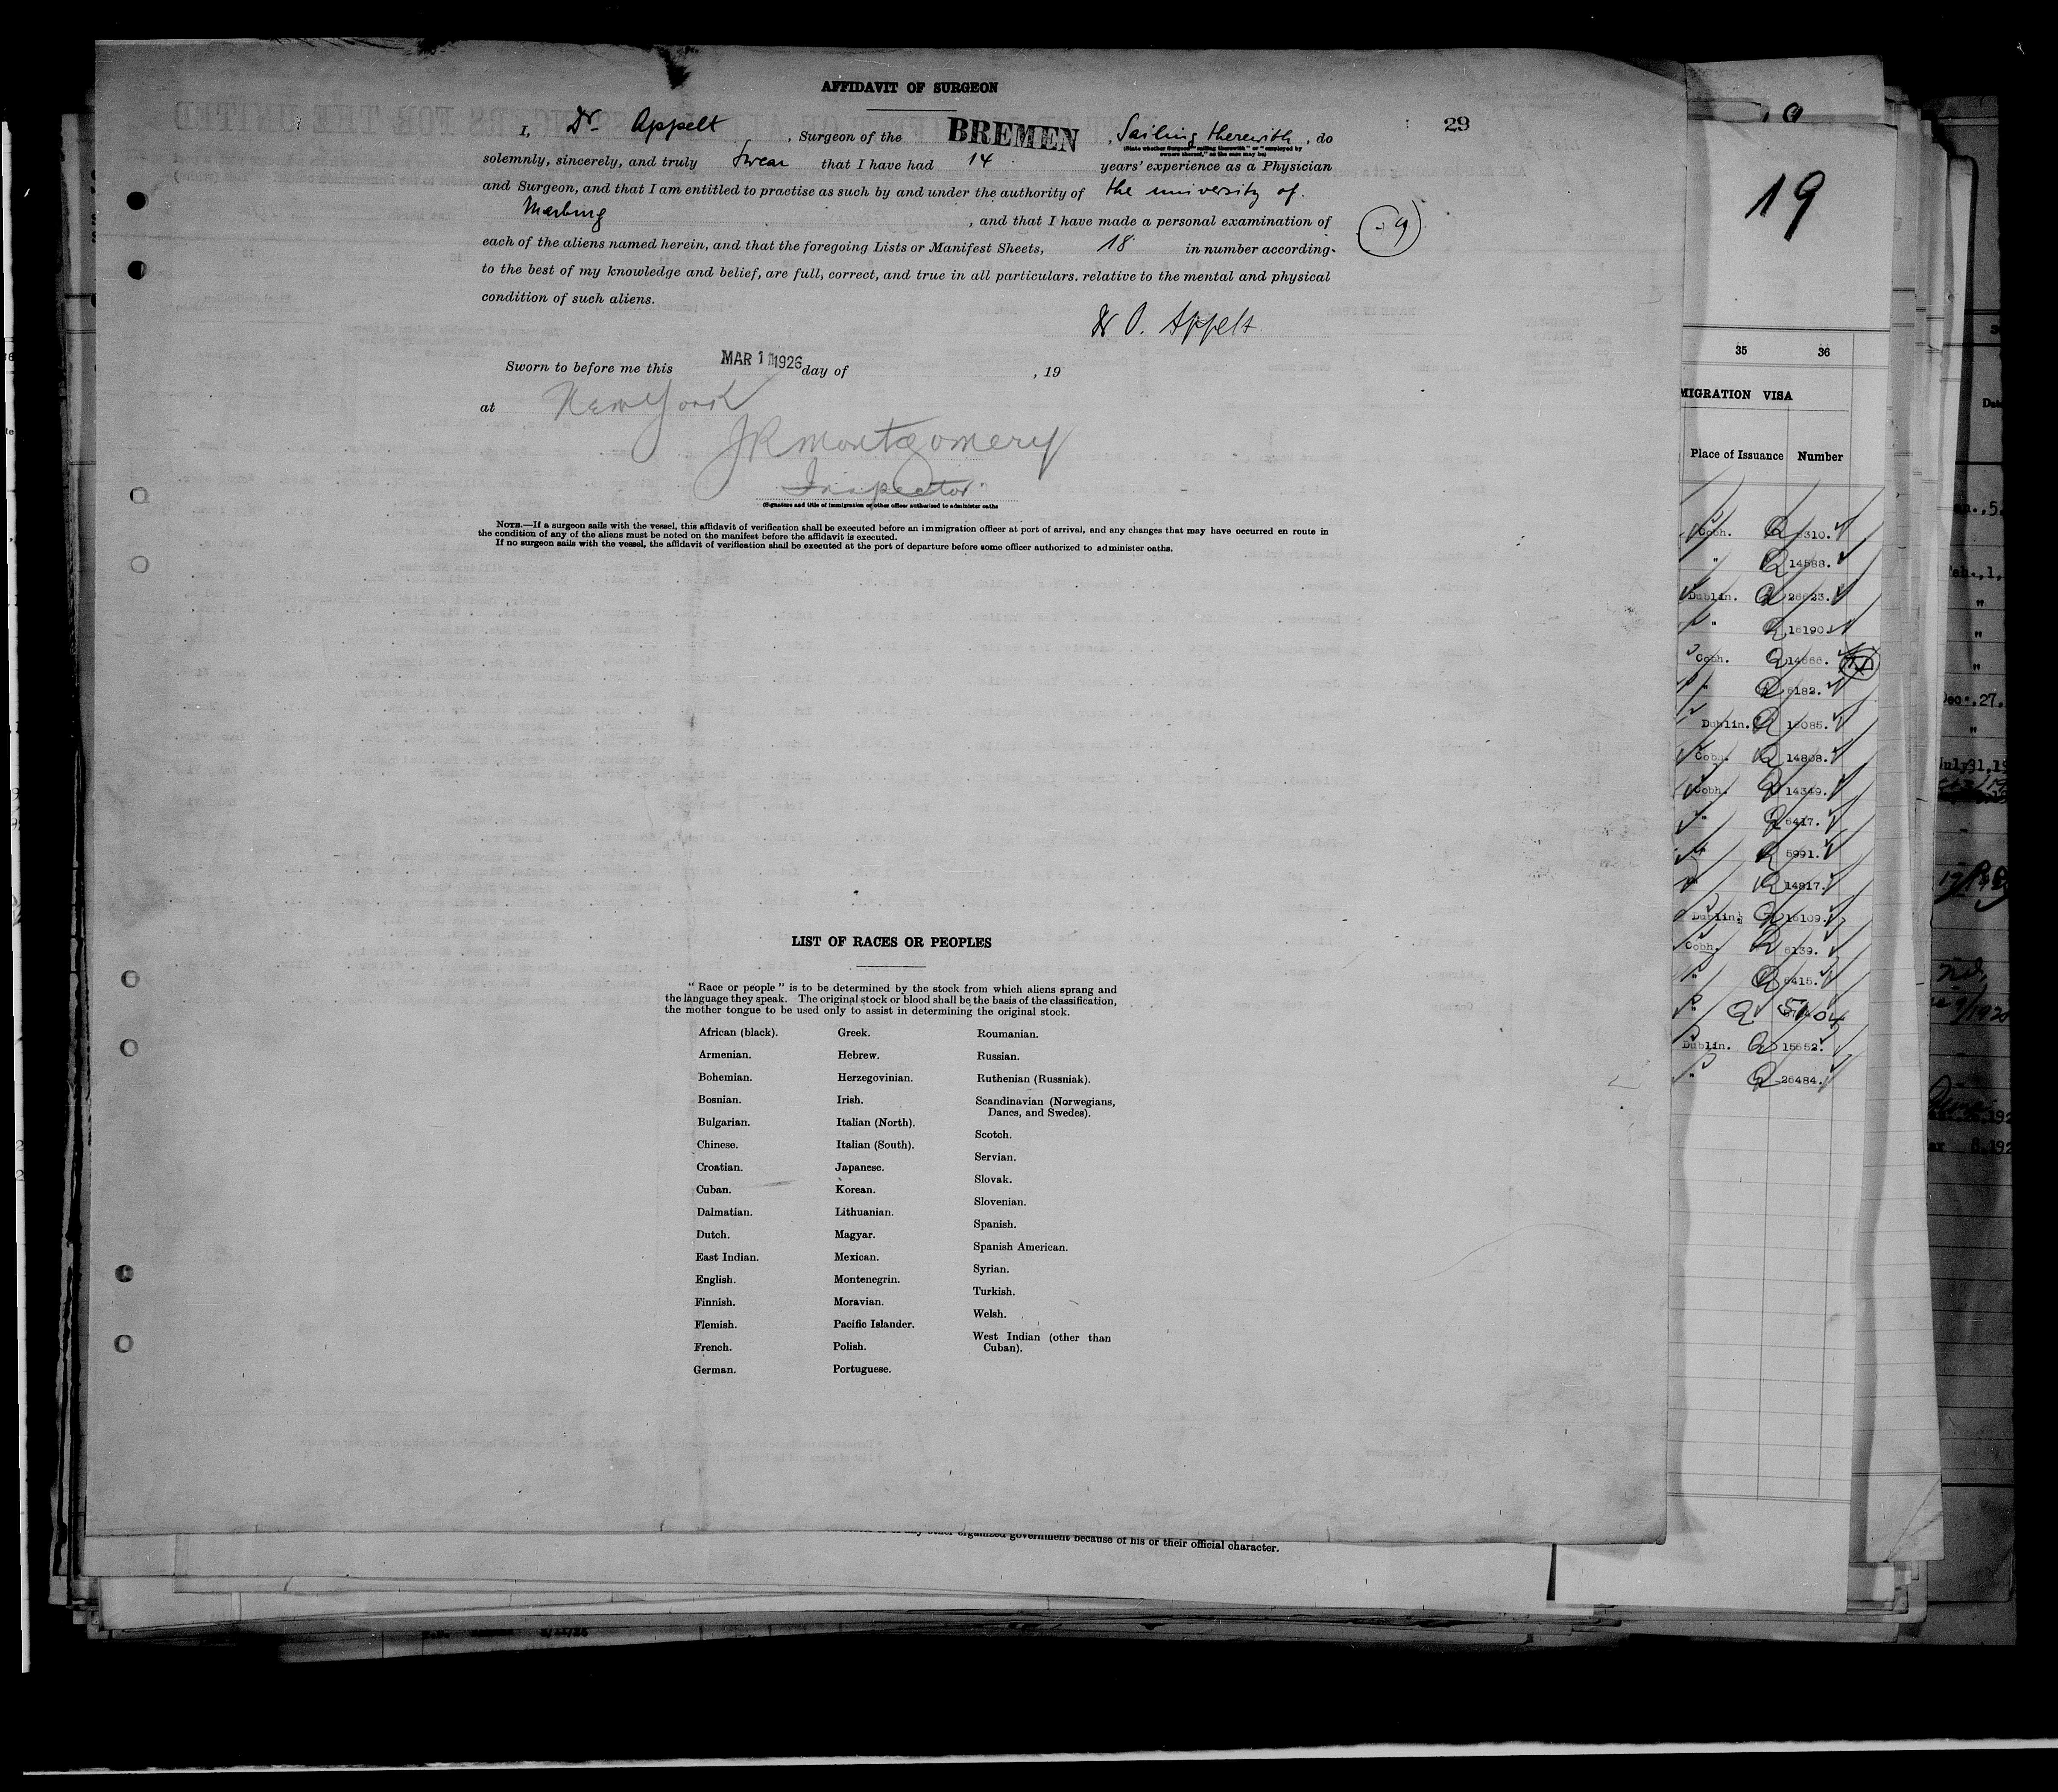 AFFIDAVIT OF SURGEON
29
I, Dr. Appelt , Surgeon of the BREMEN , Sailing therewith , do
(State whether Surgeon "sailing therewith" or "employed by
owners thereof," as the case may be)
solemnly, sincerely, and truly swear that I have had 14 years' experience as a Physician
and Surgeon, and that I am entitled to practise as such by and under the authority of the university of
Marburg , and that I have made a personal examination of
each of the aliens named herein, and that the foregoing Lists or Manifest Sheets, 18 in number according
to the best of my knowledge and belief, are full, correct, and true in all particulars, relative to the mental and physical
condition of such aliens.
Dr O. Appelt
Sworn to before me this MAR 1 1926 day of , 19
at New York
JR Montgomery
Inspector
(Signature and title of immigration or other officer authorized to administer oaths
NOTE.—If a surgeon sails with the vessel, this affidavit of verification shall be executed before an immigration officer at port of arrival, and any changes that may have occurred en route in
the condition of any of the aliens must be noted on the manifest before the affidavit is executed.
If no surgeon sails with the vessel, the affidavit of verification shall be executed at the port of departure before some officer authorized to administer oaths.
LIST OF RACES OR PEOPLES
"Race or people" is to be determined by the stock from which aliens sprang and
the language they speak. The original stock or blood shall be the basis of the classification,
the mother tongue to be used only to assist in determining the original stock.
African (black).
Armenian.
Bohemian.
Bosnian.
Bulgarian.
Chinese.
Croatian.
Cuban.
Dalmatian.
Dutch.
East Indian.
English.
Finnish.
Flemish.
French.
German.
Greek.
Hebrew.
Herzegovinian.
Irish.
Italian (North).
Italian (South).
Japanese.
Korean.
Lithuanian.
Magyar.
Mexican.
Montenegrin.
Moravian.
Pacific Islander.
Polish.
Portuguese.
Roumanian.
Russian.
Ruthenian (Russniak).
Scandinavian (Norwegians,
Danes, and Swedes).
Scotch.
Servian.
Slovak.
Slovenian.
Spanish.
Spanish American.
Syrian.
Turkish.
Welsh.
West Indian (other than
Cuban).
other organized government because of his or their official character.
19
35 36
MIGRATION VISA
Place of Issuance Number
Cobh. Q 310.
" Q 14588.
Dublin. Q 26623.
" Q 16190
Cobh. Q
" Q 6182.
Dublin. Q 15085.
Cobh. Q 14808.
Cobh. Q 14349.
" Q 6417.
" Q 5991.
" Q 14817.
Dublin. Q 15109.
Cobh. Q 6139.
" Q 6415.
" Q
Dublin. Q 15552.
" Q 26484.